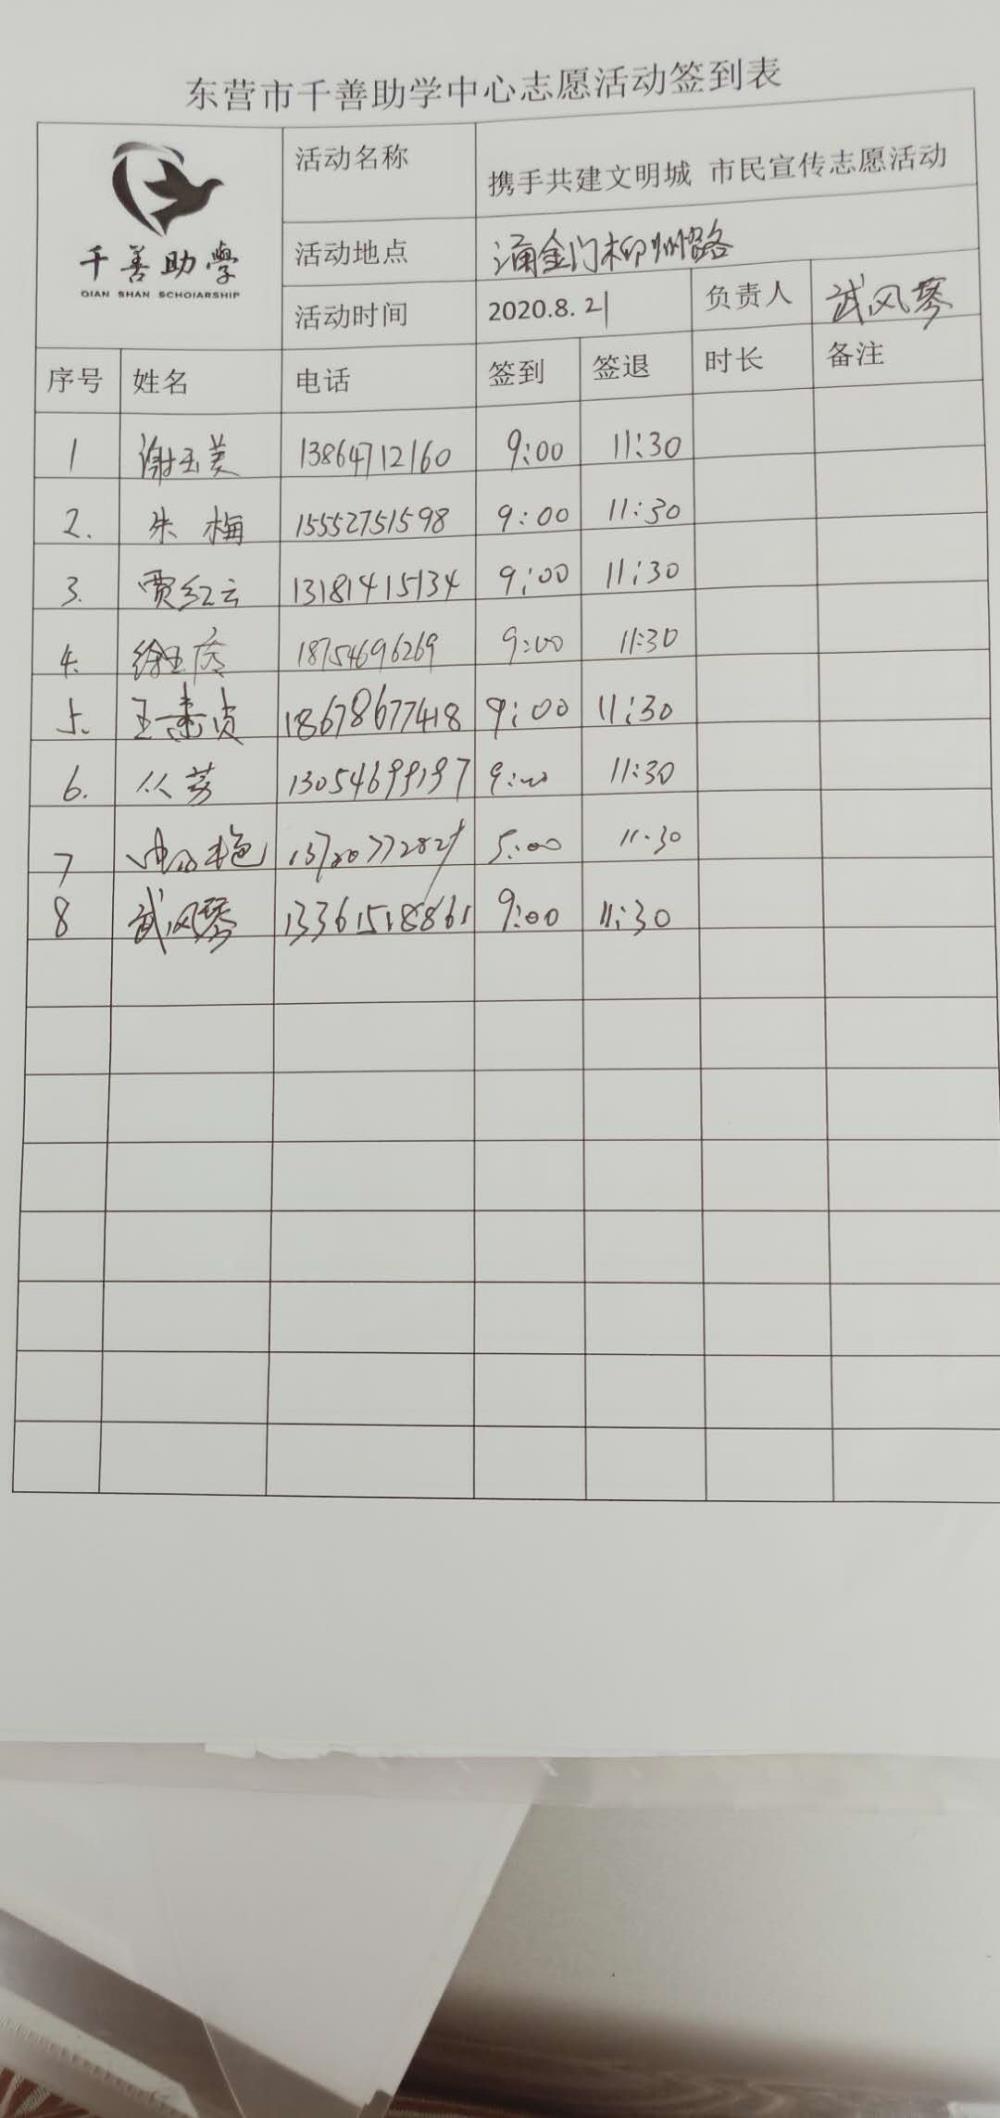 东营市千善助学中心志愿活动签到表
千善助學
QIAN SHAN SCHOIARSHIP
活动名称 携手共建文明城 市民宣传志愿活动
活动地点 涌金门柳州路
活动时间 2020.8.21 负责人 武风琴
序号 姓名 电话 签到 签退 时长 备注
1 谢玉美 13864712160 9:00 11:30
2. 朱梅 15552751598 9:00 11:30
3. 贾红云 13181415134 9:00 11:30
4. 18754696269 9:00 11:30
5. 王素贞 18678677418 9:00 11:30
6. 丛芳 13054699197 9:00 11:30
7 11:30
8 武风琴 13361518861 9:00 11:30